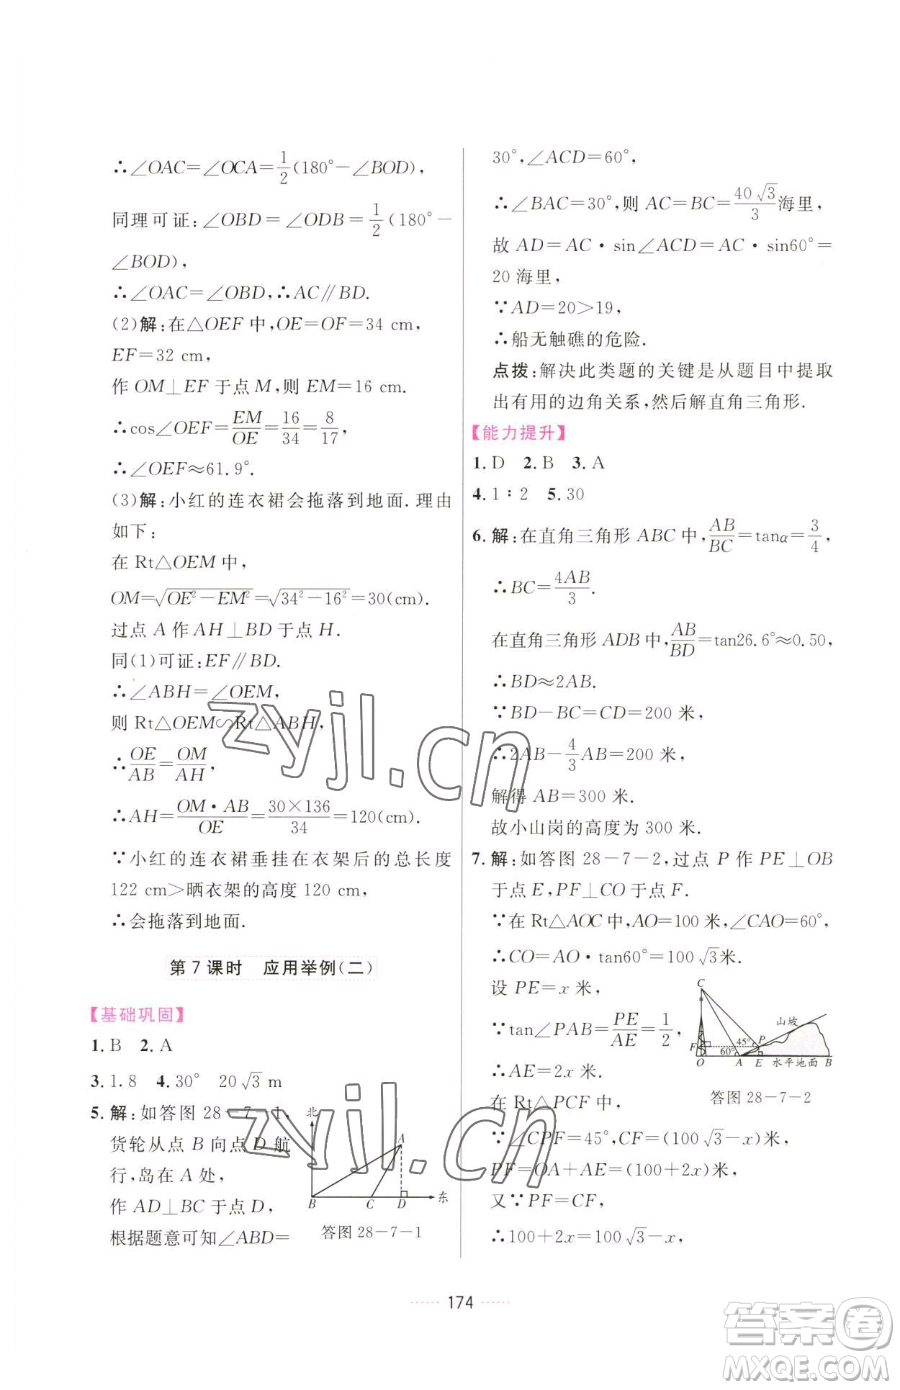 ∴∠OAC=∠OCA=1/2(180°-∠BOD),
同理可证:∠OBD=∠ODB=1/2(180°-
∠BOD),
∴∠OAC=∠OBD,∴AC∥BD.
(2)解:在△OEF中,OE=OF=34 cm,
EF=32 cm,
作OM⊥EF于点M,则EM=16 cm.
∴cos∠OEF=EM/OE=16/34=8/17,
∴∠OEF≈61.9°.
(3)解:小红的连衣裙会拖落到地面.理由
如下:
在Rt△OEM中,
OM=√(OE²-EM²)=√(34²-16²)=30(cm).
过点A作AH⊥BD于点H.
同(1)可证:EF∥BD.
∴∠ABH=∠OEM,
则Rt△OEM∽Rt△ABH,
∴OE/AB=OM/AH,
∴AH=OM·AB/OE=30×136/34=120(cm).
∵小红的连衣裙垂挂在衣架后的总长度
122 cm>晒衣架的高度120 cm,
∴会拖落到地面.
第7课时 应用举例(二)
【基础巩固】
1.B 2.A
3.1.8 4.30° 20√3 m
5.解:如答图28-7-1,
货轮从点B向点D航
行,岛在A处,
作AD⊥BC于点D,
根据题意可知∠ABD=
北
A
B C D 东
答图28-7-1
30°,∠ACD=60°,
∴∠BAC=30°,则AC=BC=40√3/3海里,
故AD=AC·sin∠ACD=AC·sin60°=
20海里,
∵AD=20>19,
∴船无触礁的危险.
点拨:解决此类题的关键是从题目中提取
出有用的边角关系,然后解直角三角形.
【能力提升】
1.D 2.B 3.A
4.1∶2 5.30
6.解:在直角三角形ABC中,AB/BC=tanα=3/4,
∴BC=4AB/3.
在直角三角形ADB中,AB/BD=tan26.6°≈0.50,
∴BD≈2AB.
∵BD-BC=CD=200米,
∴2AB-4/3AB=200米,
解得AB=300米.
故小山岗的高度为300米.
7.解:如答图28-7-2,过点P作PE⊥OB
于点E,PF⊥CO于点F.
∵在Rt△AOC中,AO=100米,∠CAO=60°,
∴CO=AO·tan60°=100√3米.
设PE=x米,
∵tan∠PAB=PE/AE=1/2,
∴AE=2x米.
在Rt△PCF中,
∵∠CPF=45°,CF=(100√3-x)米,
PF=OA+AE=(100+2x)米,
又∵PF=CF,
∴100+2x=100√3-x,
C
山坡
F 45° P
60°
O A E 水平地面 B
答图28-7-2
174
zyjl.cn
zyjl.cn
答案圈
MXQE.COM